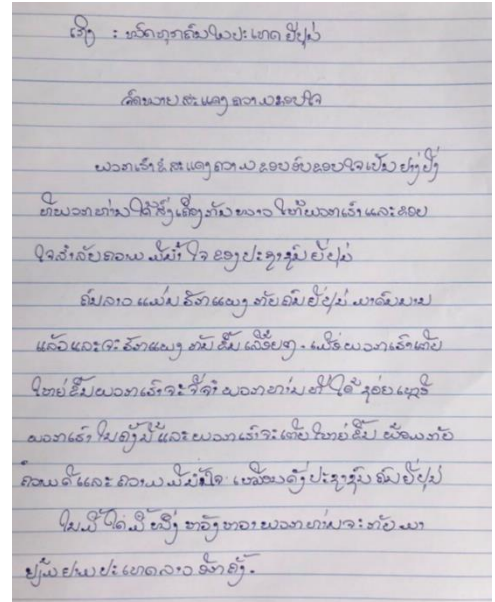 ເຖິງ : ໝົດທຸກຄົນໃນປະເທດ ຍີ່ປຸ່ນ
ຈົດໝາຍສະແດງຄວາມຂອບໃຈ
ພວກເຮົາຂໍສະແດງຄວາມຂອບອົບຂອບໃຈເປັນຢ່າງຍິ່ງ
ທີ່ພວກທ່ານໄດ້ສົ່ງເຄື່ອງກັນໜາວໃຫ້ພວກເຮົາແລະຂອບ
ໃຈສຳລັບຄວາມມີນ້ຳໃຈຂອງປະຊາຊົນຍີ່ປຸ່ນ
ຄົນລາວແມ່ນຮັກແພງກັບຄົນຍີ່ປຸ່ນມາດົນນານ
ແລ້ວແລະຈະຮັກແພງກັນຂຶ້ນເລື້ອຍໆ. ເມື່ອພວກເຮົາເຕີບ
ໃຫຍ່ຂຶ້ນພວກເຮົາຈະຈື່ຈຳພວກທ່ານທີ່ໄດ້ຊ່ອຍເຫຼືອ
ພວກເຮົາໃນຄັ້ງນີ້ແລະພວກເຮົາຈະເຕີບໃຫຍ່ຂຶ້ນພ້ອມກັບ
ຄວາມດີແລະຄວາມມີນ້ຳໃຈ ເໝືອນດັ່ງປະຊາຊົນຄົນຍີ່ປຸ່ນ
ໃນມື້ໃດມື້ໜຶ່ງຫວັງວ່າພວກທ່ານຈະກັບມາ
ຢ້ຽມຢາມປະເທດລາວອີກຄັ້ງ.